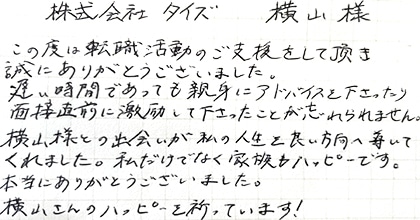 株式会社 タイズ 横山様
この度は転職活動のご支援をして頂き
誠にありがとうございました。
遅い時間であっても親身にアドバイスを下さったり
面接直前に激励して下さったことが忘れられません。
横山様との出会いが私の人生を良い方向へ導いて
くれました。私だけでなく家族もハッピーです。
本当にありがとうございました。
横山さんのハッピーを祈っています!